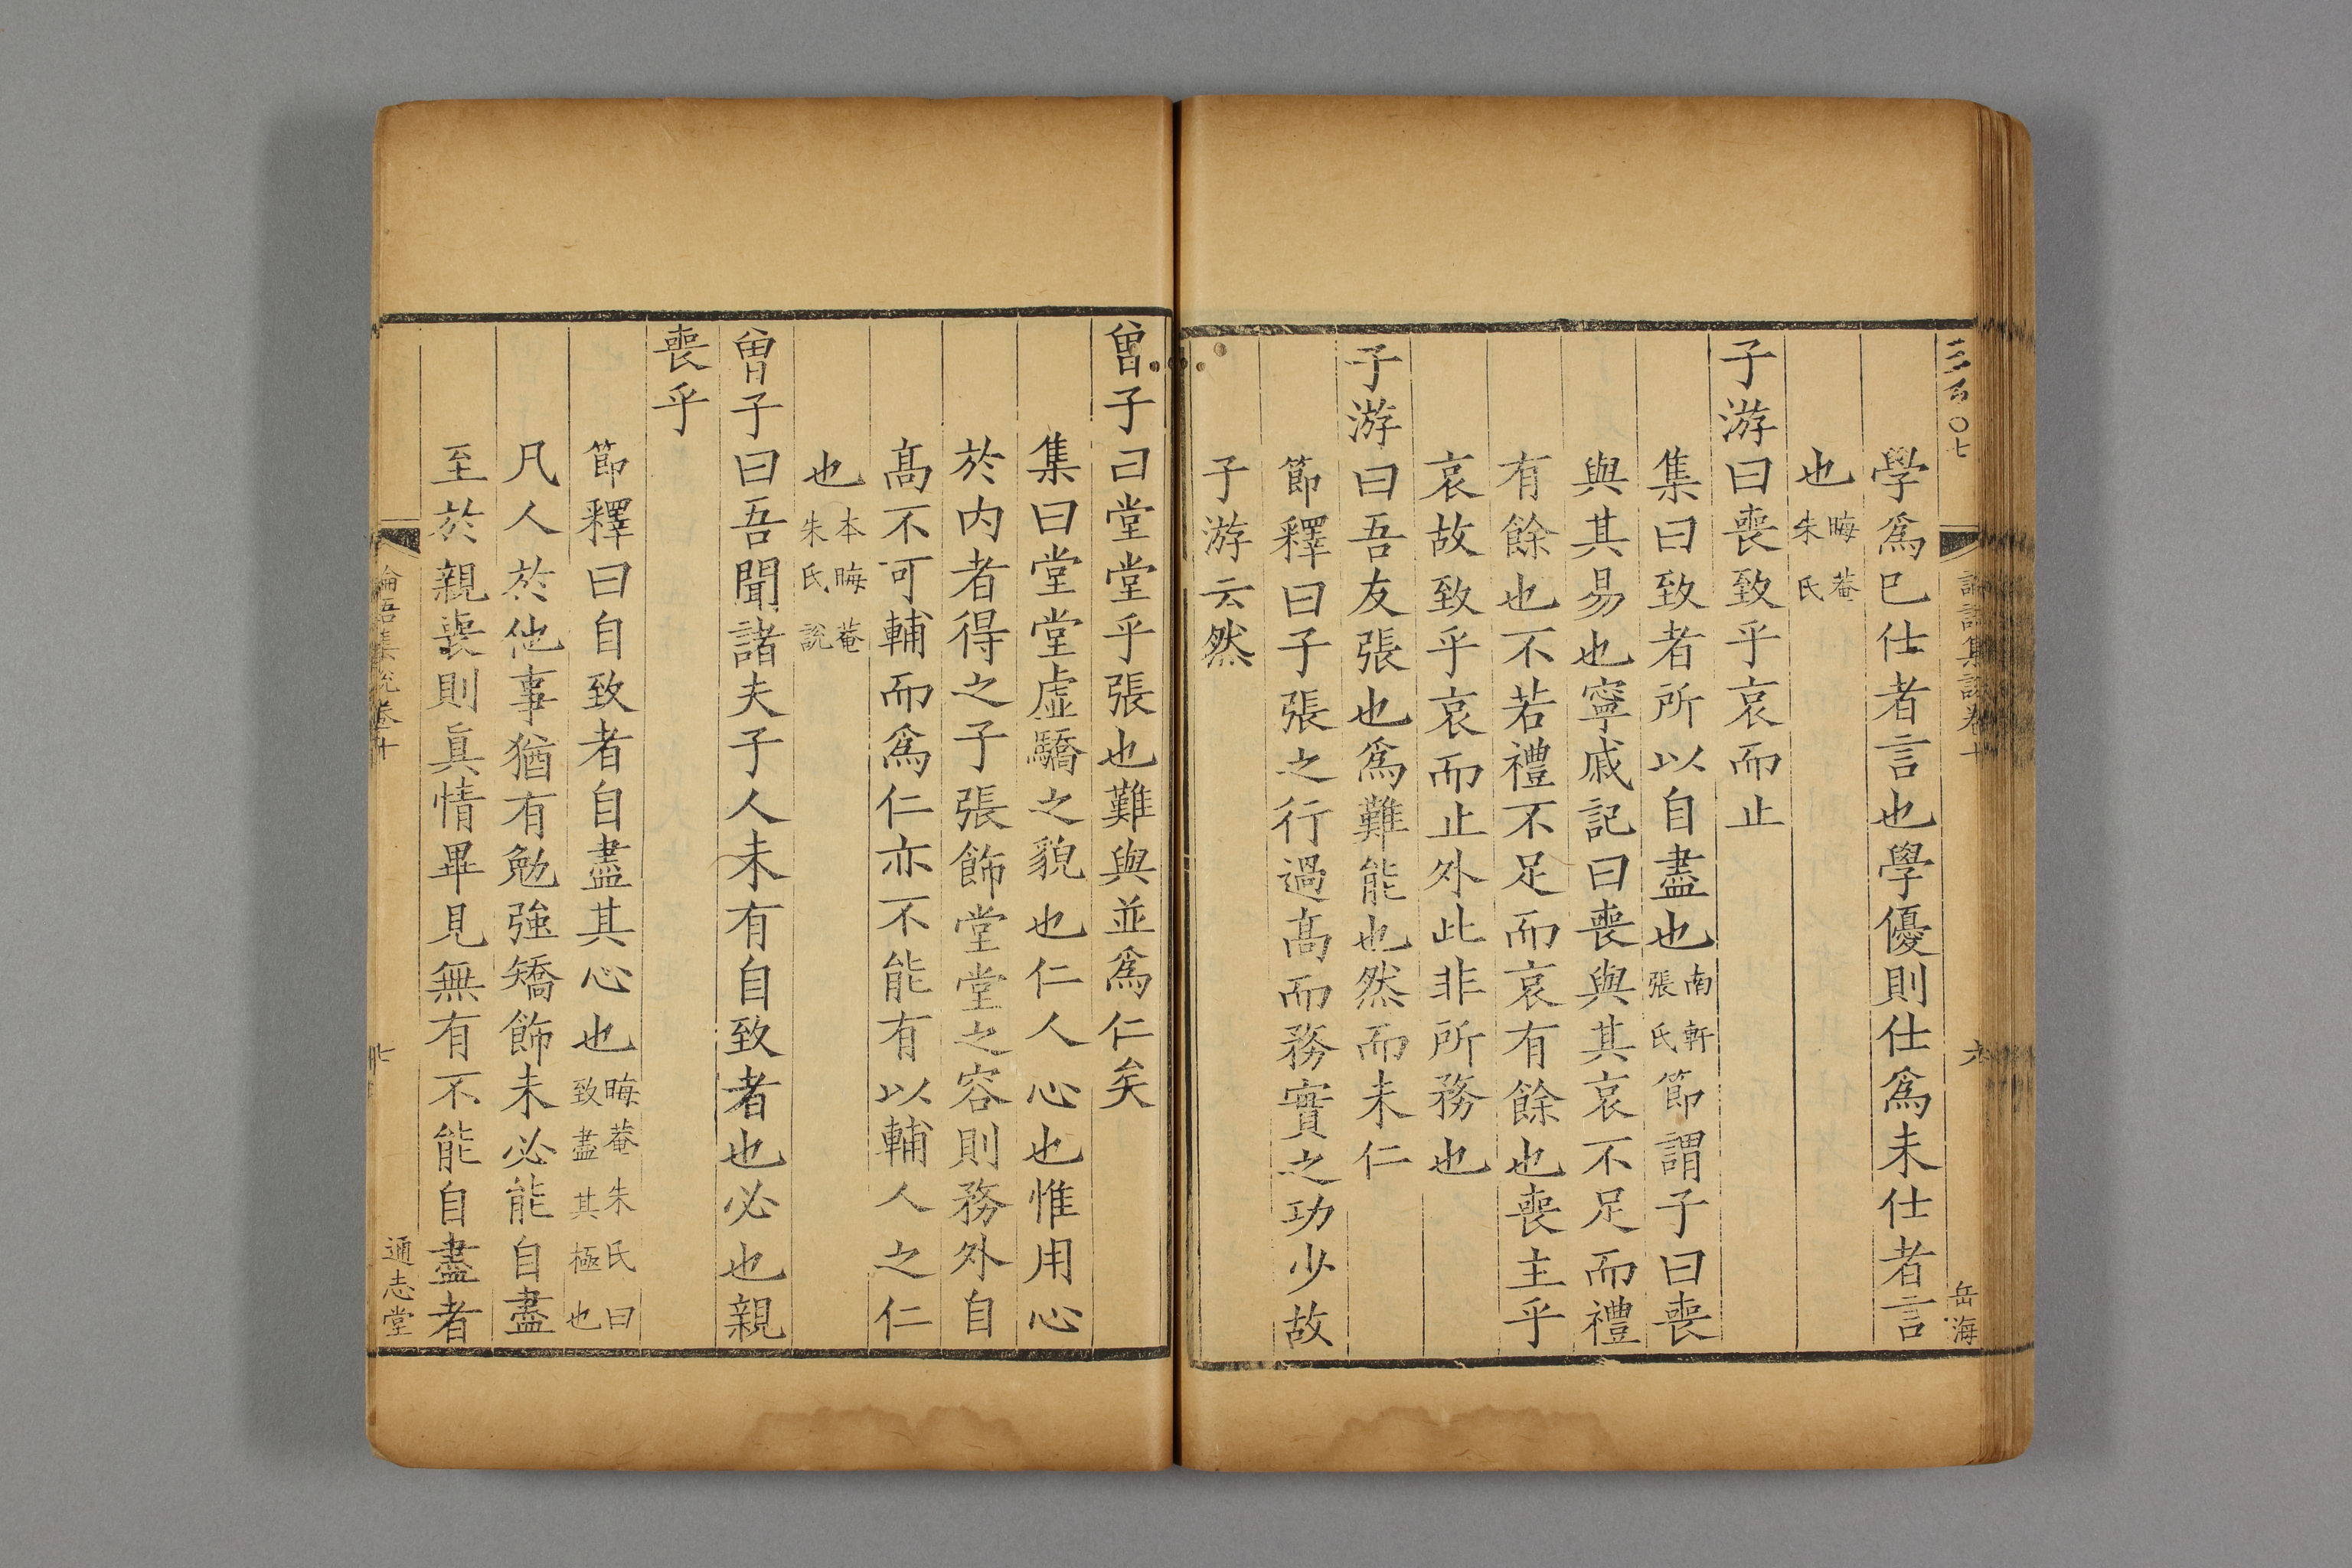 三百〇七
論語集說卷十
六
岳海
學爲已仕者言也學優則仕爲未仕者言
也晦菴朱氏
子游曰喪致乎哀而止
集曰致者所以自盡也南軒張氏節謂子曰喪
與其易也寧戚記曰喪與其哀不足而禮
有餘也不若禮不足而哀有餘也喪主乎
哀故致乎哀而止外此非所務也
子游曰吾友張也爲難能也然而未仁
節釋曰子張之行過高而務實之功少故
子游云然
曾子曰堂堂乎張也難與並爲仁矣
集曰堂堂虛驕之貌也仁人心也惟用心
於内者得之子張飾堂堂之容則務外自
高不可輔而爲仁亦不能有以輔人之仁
也本晦菴朱氏說
曾子曰吾聞諸夫子人未有自致者也必也親
喪乎
節釋曰自致者自盡其心也晦菴朱氏曰致盡其極也
凡人於他事猶有勉強矯飾未必能自盡
至於親喪則眞情畢見無有不能自盡者
論語集說卷十
通志堂